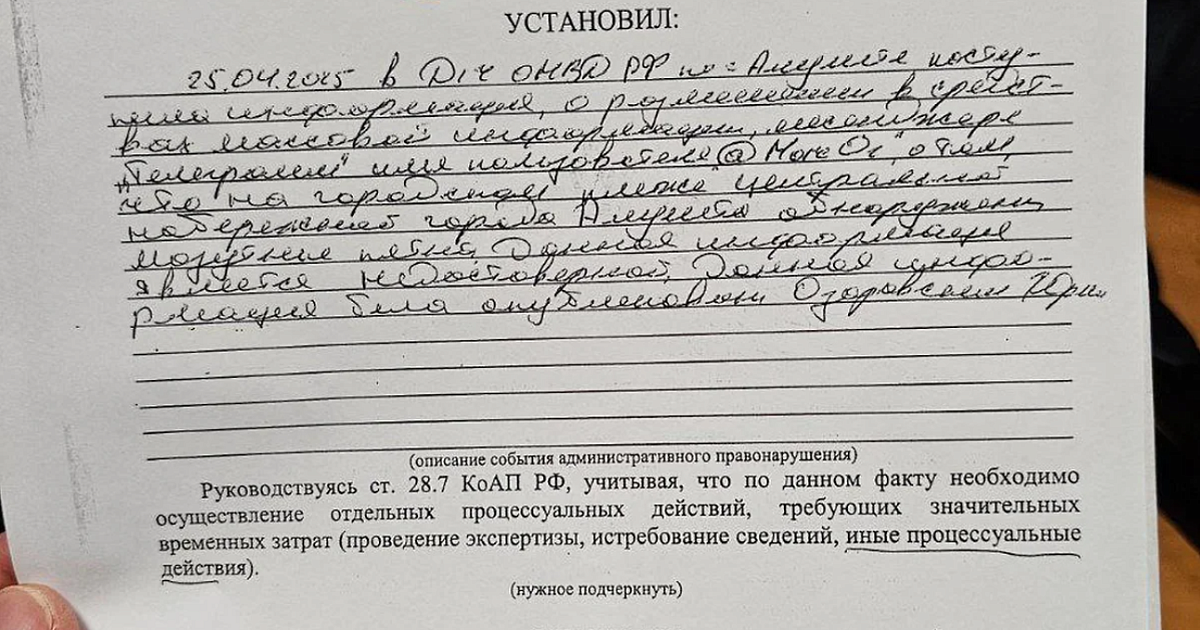 УСТАНОВИЛ:
25.04.2025 в Д/Ч ОМВД РФ по г. Алуште посту-
пила информация, о размещении в средст-
вах массовой информации, мессенджере
„Телеграмм" имя пользователя @More о том,
что на городском пляже центральной
набережной города Алушта обнаружены
мазутные пятна. Данная информация
является недостоверной. Данная инфо-
рмация была опубликована Озаровским Юри
(описание события административного правонарушения)
Руководствуясь ст. 28.7 КоАП РФ, учитывая, что по данном факту необходимо
осуществление отдельных процессуальных действий, требующих значительных
временных затрат (проведение экспертизы, истребование сведений, иные процессуальные
действия).
(нужное подчеркнуть)